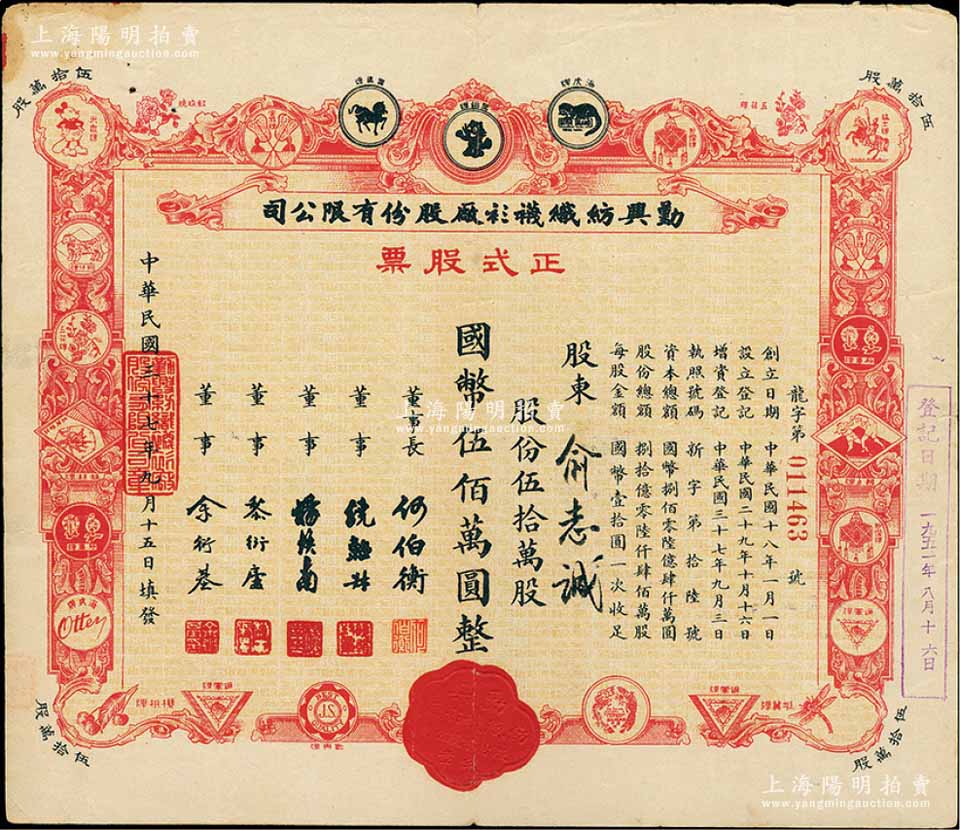 上海陽明拍賣
www.yangmingauction.com
上海陽明拍賣
www.yangmingauction.com
伍拾萬股
伍拾萬股
勤興紡織襪衫廠股份有限公司
正式股票
龍字第 011463 號
創立日期 中華民國十八年一月一日
設立登記 中華民國二十九年十月十六日
增資登記 中華民國三十七年九月三日
執照號碼 新字第拾陸號
資本總額 國幣捌佰零陸億肆仟萬圓
股份總額 捌拾億零陸仟肆佰萬股
每股金額 國幣壹拾圓一次收足
股東 俞志誠
股份伍拾萬股
國幣伍佰萬圓整
董事長 何伯衡
董事
董事
董事 黎衍廬
董事 余衍基
中華民國三十七年九月十五日填發
登記日期 一九五一年八月十六日
Otter
BEST
212
QUALITY
伍拾萬股
伍拾萬股
上海陽明拍賣
www.yangmingauction.com